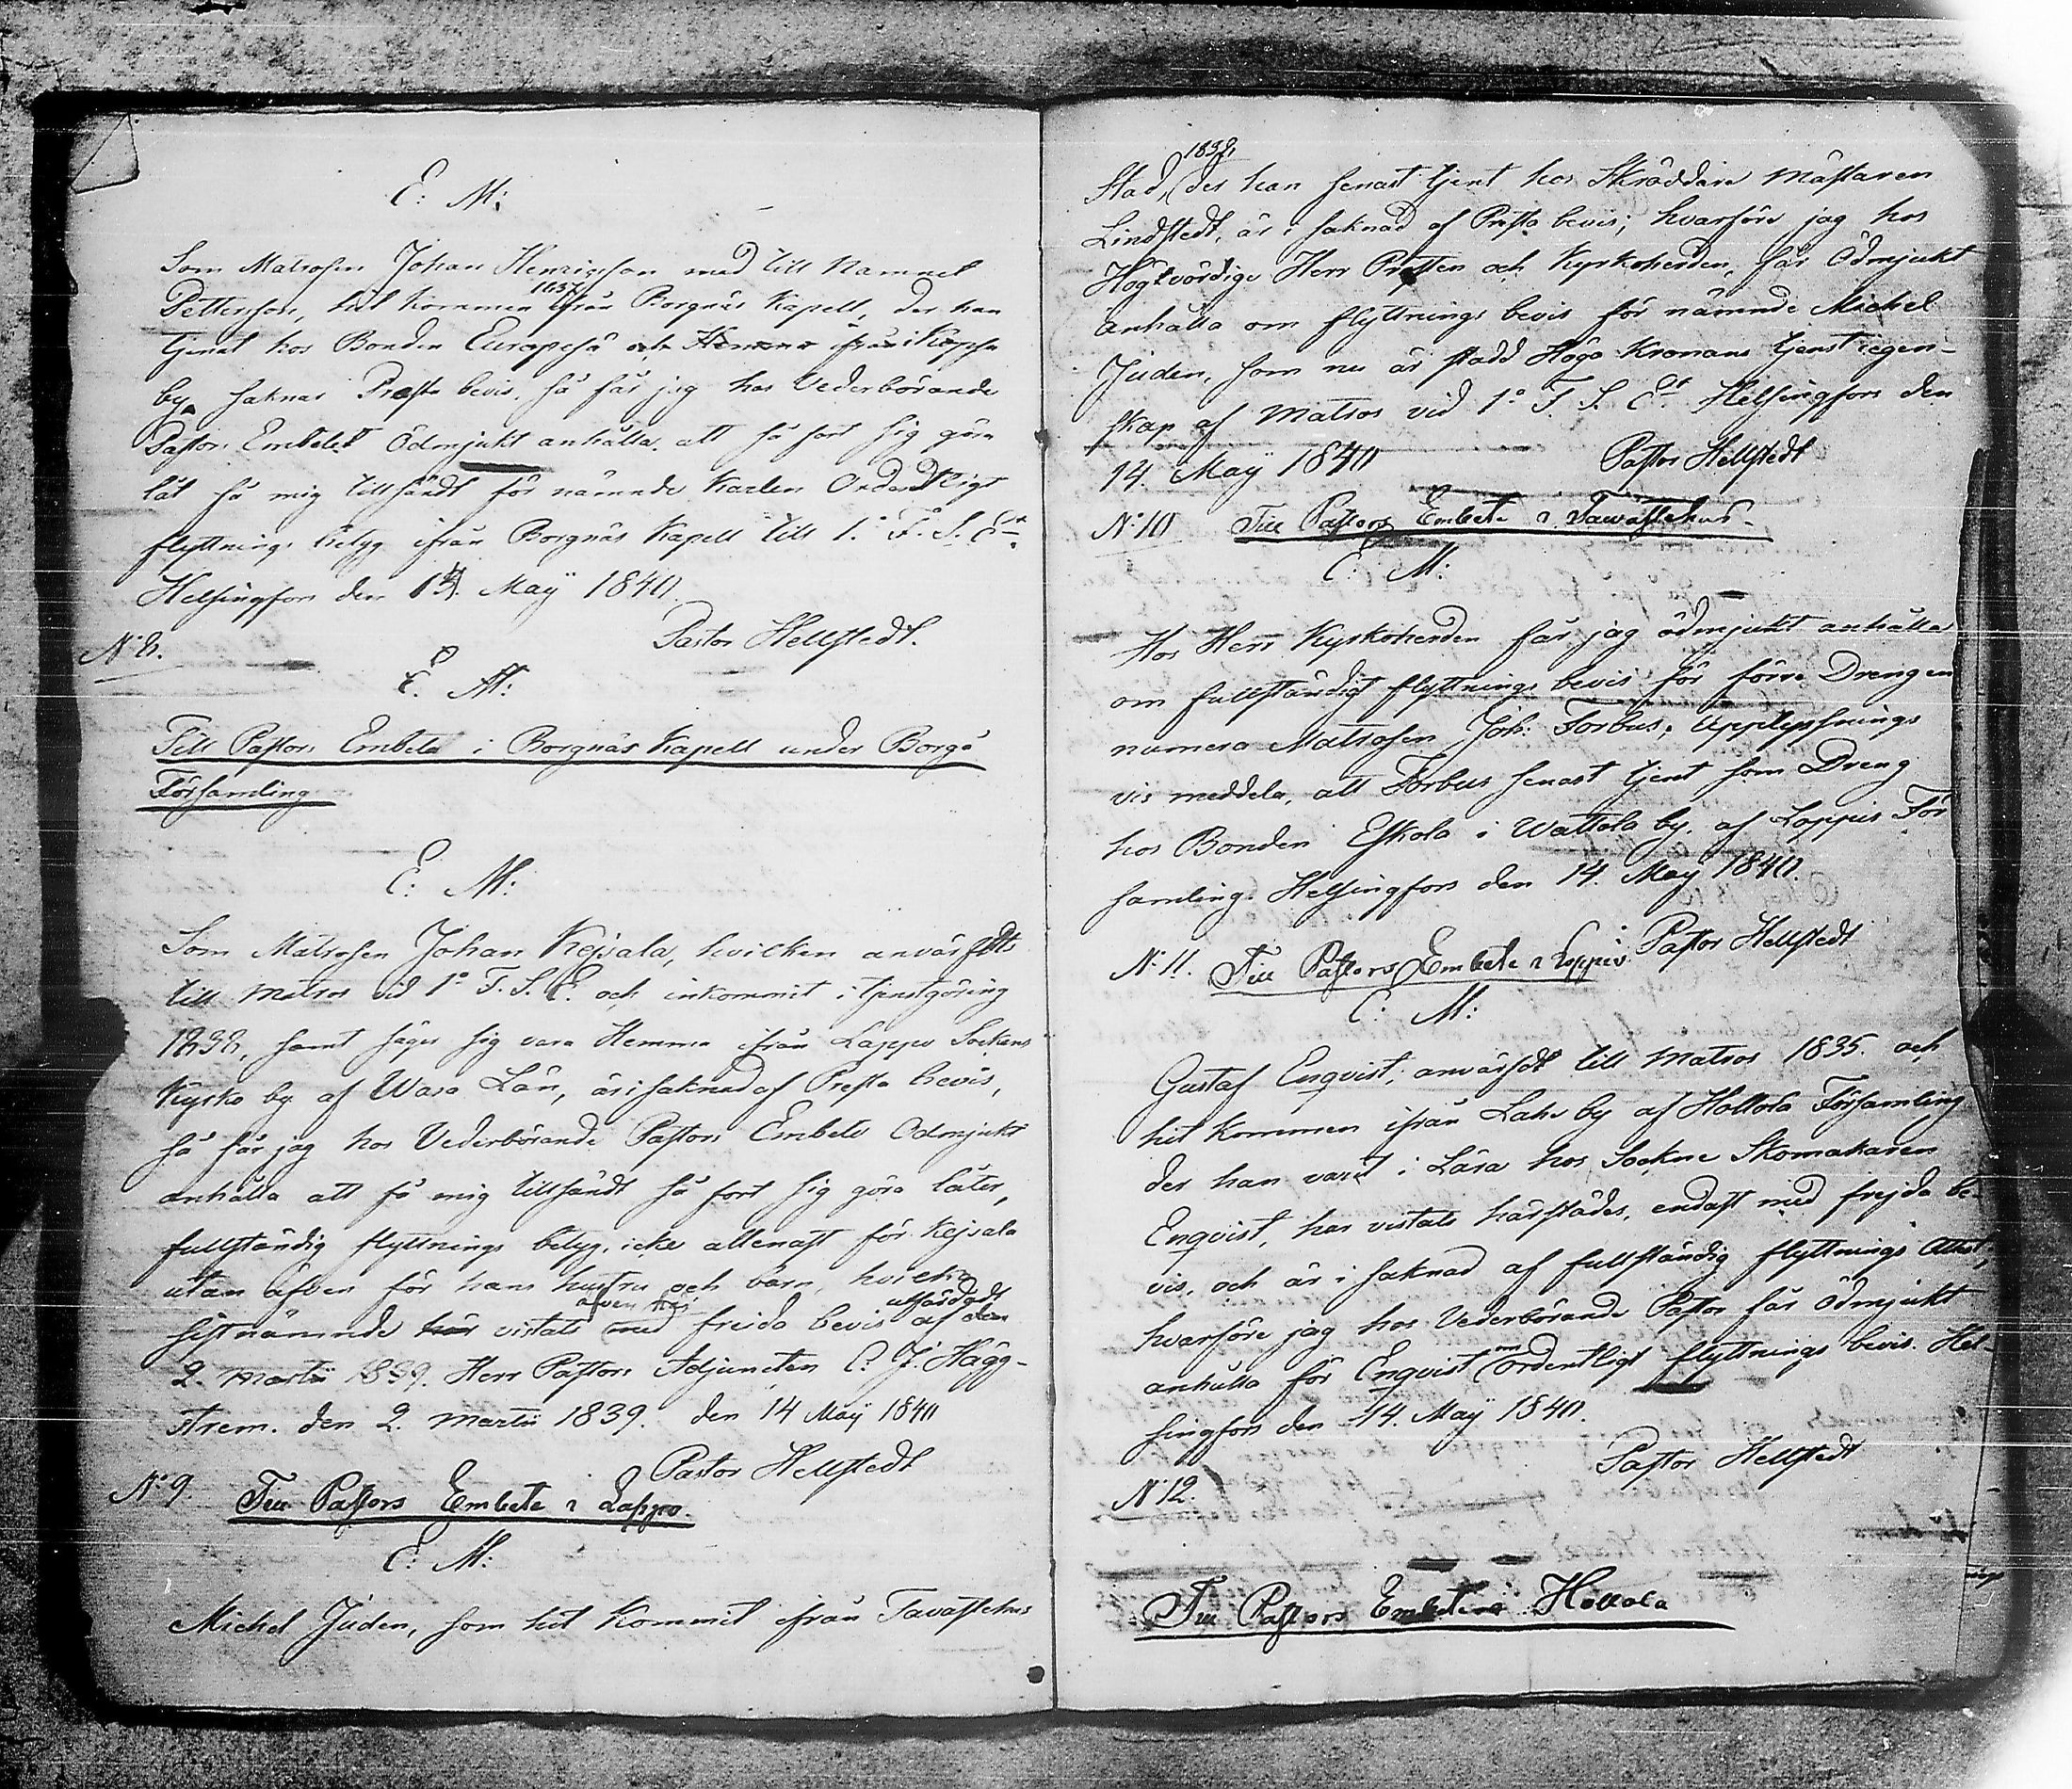 E: M:
Som Matrosen Johan Henricsson med till Namnet
Pettersson, hit kommen 1837 ifrån Borgnäs Kapell, der han
tjenat hos Bonden Europeså och Hemma ifrån i
by, saknar Presta bevis, så får jag hos Vederbörande
Pastors Embetet Ödmjukt anhålla, att så fort sig göra
låt få mig tillsändt för nämnde Karlen Ordentligt
flyttnings betyg ifrån Borgnäs Kapell till 1:a F. S. Et.
Helsingfors den 14. Maÿ 1840.
Pastor Hellstedt.
N:o 8.
E. M:
Till Pastors Embete i Borgnäs Kapell under Borgå
Församling
E: M:
Som Matrosen Johan Kejsala, hvilken anvärfdts
till Matros vid 1:a F. S. E. och inkommit i tjenstgöring
1838, samt säger sig vara Hemma ifrån Lappo Sockens
Kyrko by af Wasa Län, är i saknad af Presta bevis,
så får jag hos Vederbörande Pastors Embete Ödmjukt
anhålla att få mig tillsändt så fort sig göra låter,
fullständig flyttnings betyg, icke allenast för Kejsala
utan äfven för hans hustru och barn, hvilka
sistnämnde här vistats äfven här med frejda bevis utfärdadt af den
2. Martii 1839. Herr Pastors Adjuncten C. J. Hägg-
strem. den 2. Martii 1839. den 14 Maÿ 1840
Pastor Hellstedt
N:o 9. Till Pastors Embete i Lappo.
E: M:
Michel Juden, som hit kommit ifrån Tavastehus
Stad, 1838, der han senast tjent hos Skräddare Mästaren
Lindstedt, är i saknad af Presta bevis; hvarföre jag hos
Högtvördige Herr Prosten och Kyrkoherden, får Ödmjukt
anhålla om flyttnings bevis för nämnde Michel
Juden, som nu är stadd Höga Kronans tjenst i egen-
skap af Matros vid 1:a F. S. Et. Helsingfors den
14. Maÿ 1840
Pastor Hellstedt
N:o 10 Till Pastors Embete i Tawastehus
E: M:
Hos Herr Kyrkoherden får jag ödmjukt anhålla
om fullständigt flyttnings bevis för förre Drengen
numera Matrosen Joh: Forbus; Upplysnings
vis meddela, att Forbus senast tjent som Dreng
hos Bonden Eskola i Wattola by. af Loppis För
samling. Helsingfors den 14. Maÿ 1840.
Pastor Hellstedt
N:o 11. Till Pastors Embete i Loppis
E: M:
Gustaf Enqvist; anvärfdt till Matros 1835. och
hit kommen ifrån Lahs by af Hollola Församling
der han varit i Lära hos Sockne Skomakaren
Enqvist, har vistats härstädes, endast med frejda be-
vis, och är i saknad af fullständig flyttnings Attest;
hvarföre jag hos Vederbörande Pastor får ödmjukt
anhålla för Enqvist om ordentligt flyttnings bevis. Hel-
singfors den 14. Maÿ 1840.
Pastor Hellstedt
N:o 12.
Till Pastors Embete i Hollola